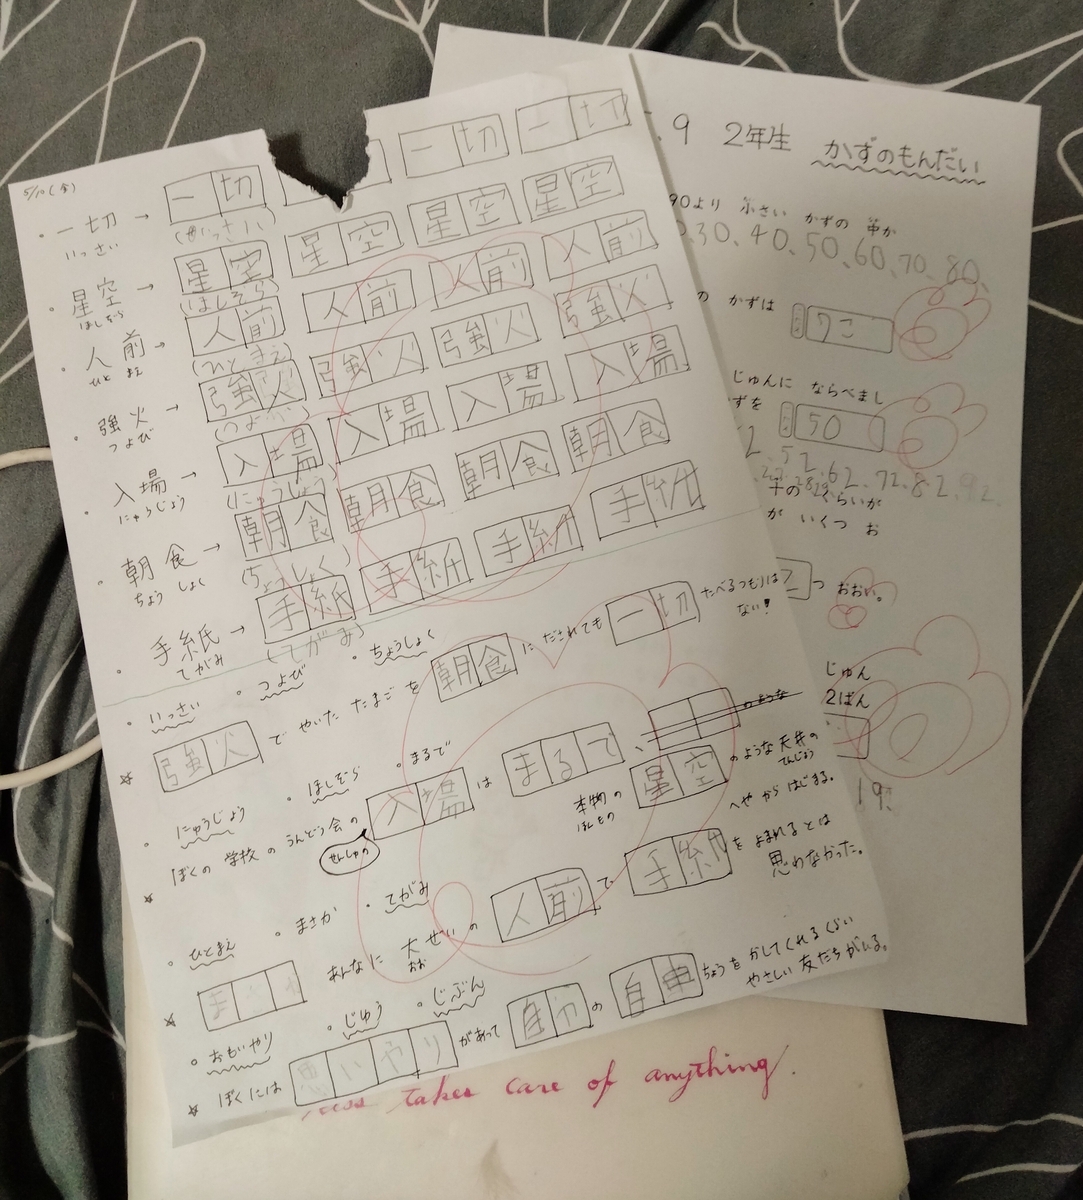 5/10(金)
・一切 → 一切 一切 一切
いっさい (いっさい)
・星空 → 星空 星空 星空 星空
ほしぞら (ほしそら)
・人前 → 人前 人前 人前 人前
ひとまえ (ひとまえ)
・強火 → 強火 強火 強火 強火
つよび
・入場 → 入場 入場 入場 入場
にゅうじょう (にゅうしょう)
・朝食 → 朝食 朝食 朝食 朝食
ちょうしょく (ちょうしょく)
・手紙 → 手紙 手紙 手紙 手紙
てがみ (てがみ)
・いっさい ・つよび ・ちょうしょく
☆ 強火 で やいた たまごを 朝食 にだされても 一切 たべるつもりは
ない!
・にゅうじょう ・ほしぞら ・まるで
☆ ぼくの 学校の うんどう会の 入場 は まるで、 のような
せんしゅの
本物の 星空 のような天井の
ほんもの てんじょう
へやからはじまる。
・ひとまえ ・まさか ・てがみ
☆ まさか あんなに 大ぜいの 人前 で 手紙 を よまれるとは
おお
思わなかった。
・おもいやり ・じゆう ・じぶん
☆ ぼくには 思いやり があって 自分 の ちょうを かしてくれるくらい
やさしい 友だちがいる。
.9 2年生 かずのもんだい
90より 小さい かずの 中か
30、40、50、60、70、80、
の かずは 7こ
じゅんに ならべまし
ずを 50
52、62、72、82、92
十の くらいが
が いくつ お
2つ おおい。
じゅん
2ばん
19
takes care of anything.